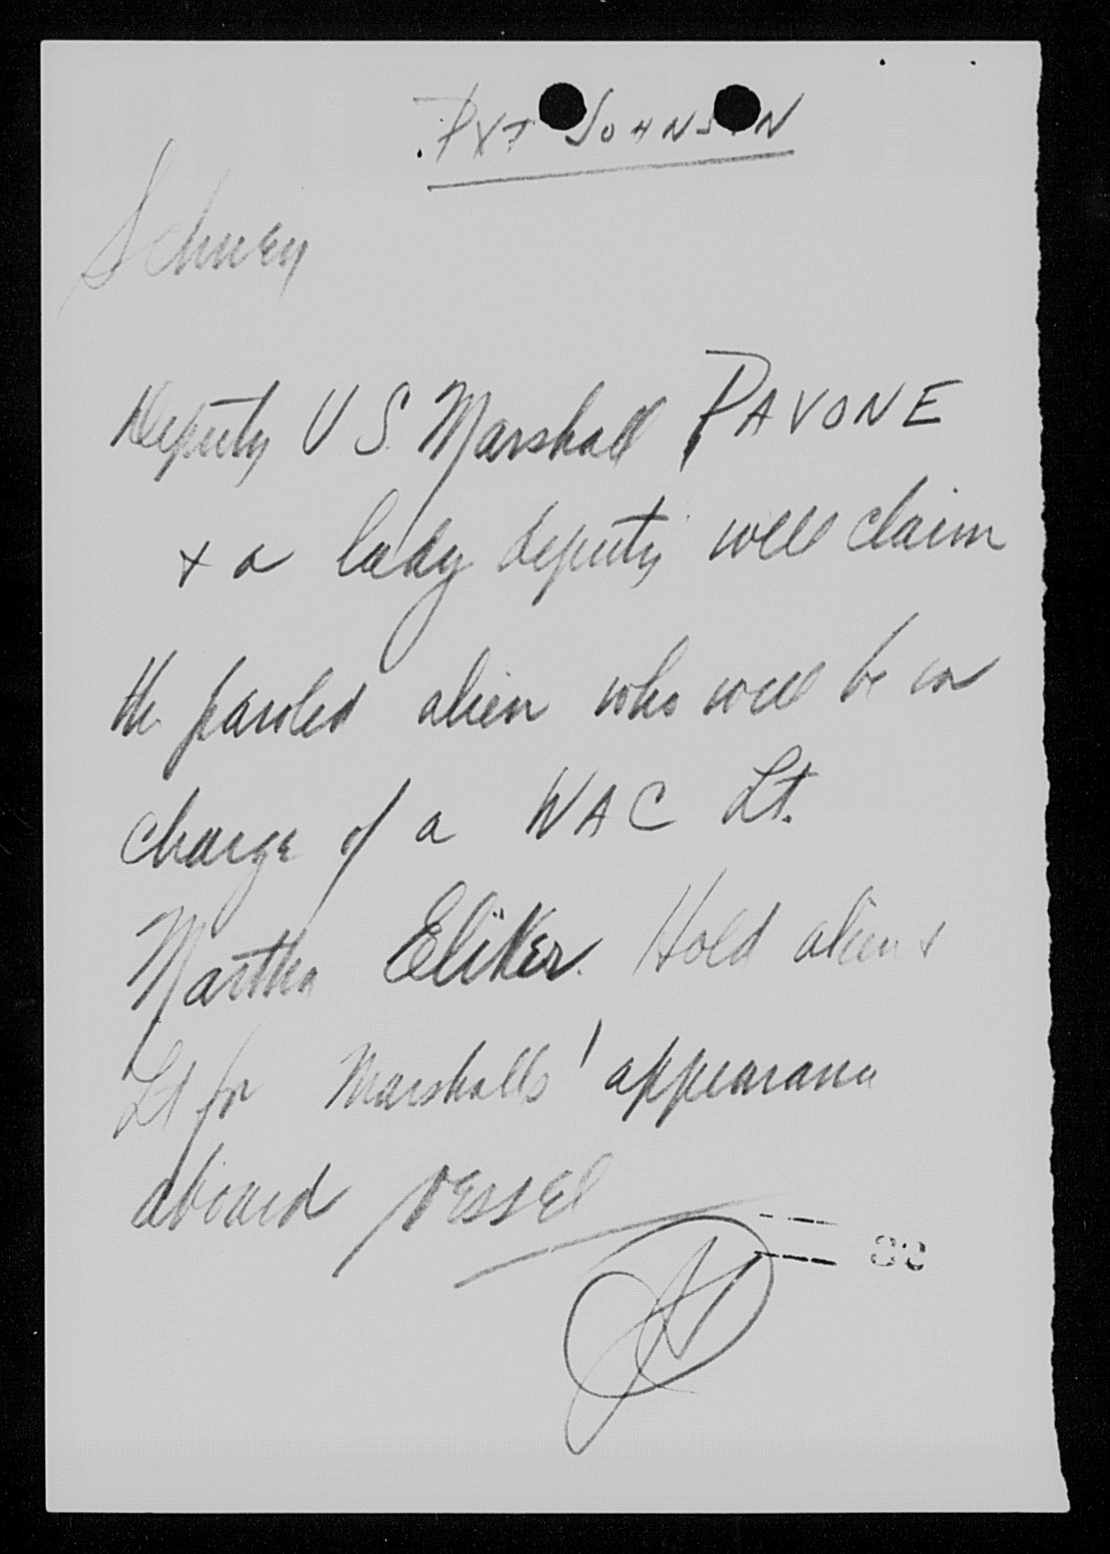 PVT JOHNSON
Deputy U S. Marshall PAVONE
+ a lady deputy will claim
the paroled alien who will be in
charge of a WAC Lt.
Martha Eliker. Hold alien +
Lt for Marshalls' appearance
aboard vessel